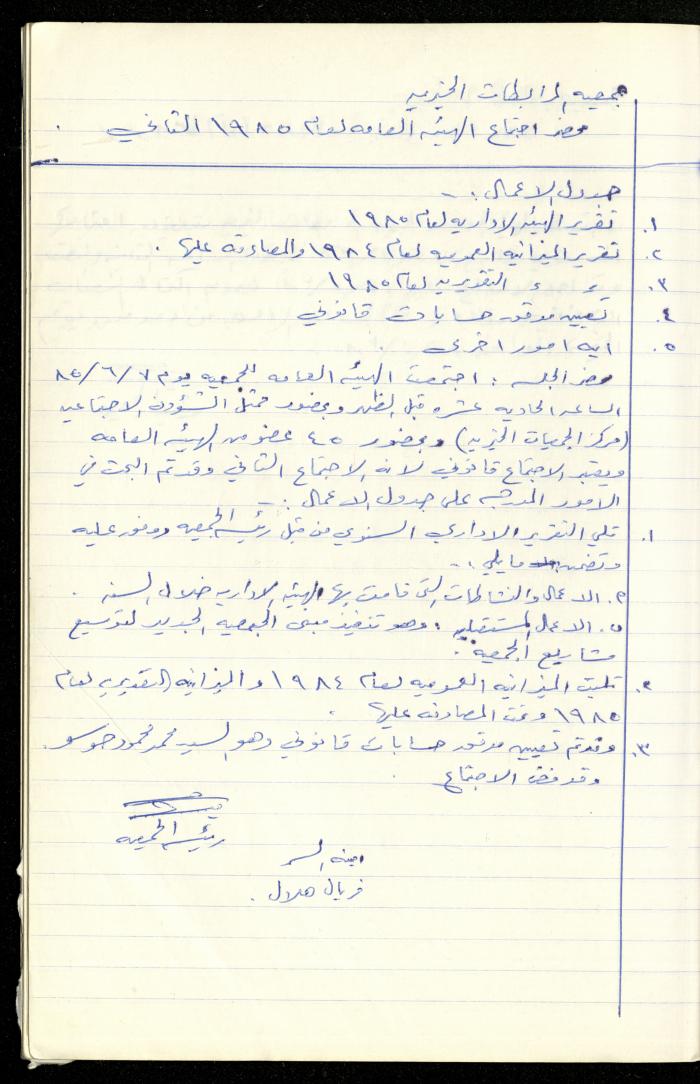 جمعيه المرابطات الخيريه
محضر اجتماع الهيئه العامه لعام ١٩٨٥ الثاني .
جدول الاعمال :-
١. تقرير الهيئه الاداريه لعام ١٩٨٥
٢. تقرير الميزانيه العموميه لعام ١٩٨٤ والمصادقه عليها .
٣. = = التقديريه لعام ١٩٨٥
٤. تعيين مدقق حسابات قانوني
٥. ايه امور اخرى
محضر الجلسه : اجتمعت الهيئه العامه للجمعيه يوم ٨٥/٦/٧
الساعه الحاديه عشره قبل الظهر وبحضور ممثل الشؤون الاجتماعيه
(مركز الجمعيات الخيريه) وبحضور ٤٥ عضو من الهيئه العامه
ويعتبر الاجتماع قانوني لانه الاجتماع الثاني وقد تم البحث في
الامور المدرجه على جدول الاعمال :-
١. تلي التقرير الاداري السنوي من قبل رئيسه الجمعيه ووفق عليه
وتضمن ما يلي :-
٩. الاعمال والنشاطات التي قامت بها الهيئه الاداريه خلال السنه .
ں. الاعمال المستقبليه : وهو تنفيذ مبنى الجمعيه الجديد لتوسيع
مشاريع الجمعيه .
٢. تليت الميزانيه العموميه لعام ١٩٨٤ والميزانيه التقديريه لعام
١٩٨٥ وتمت المصادقه عليها .
٣. وقد تم تعيين مدقق حسابات قانوني وهو السيد محمد محمود
وقد فض الاجتماع .
رئيسه الجمعيه
امينه السر
فريال هلال .